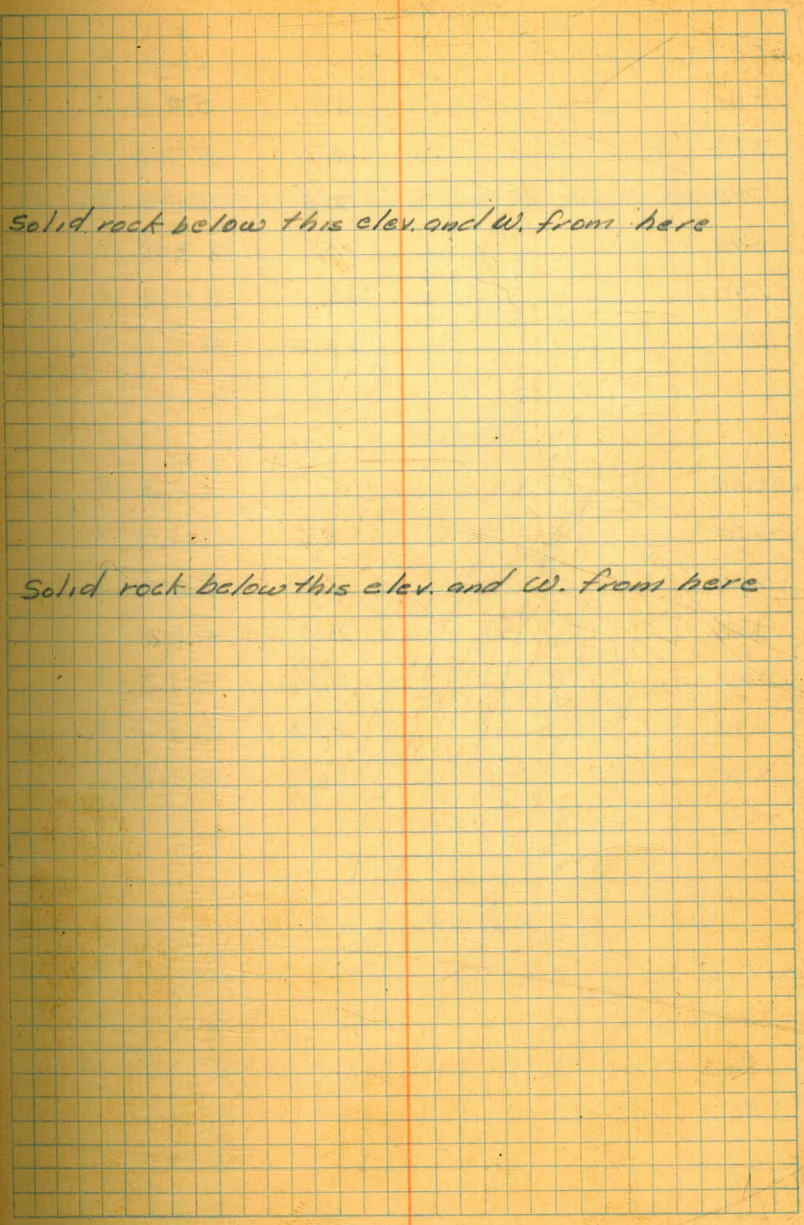 Solid rock below this elev. and W. from here
Solid rock below this elev. and W. from here